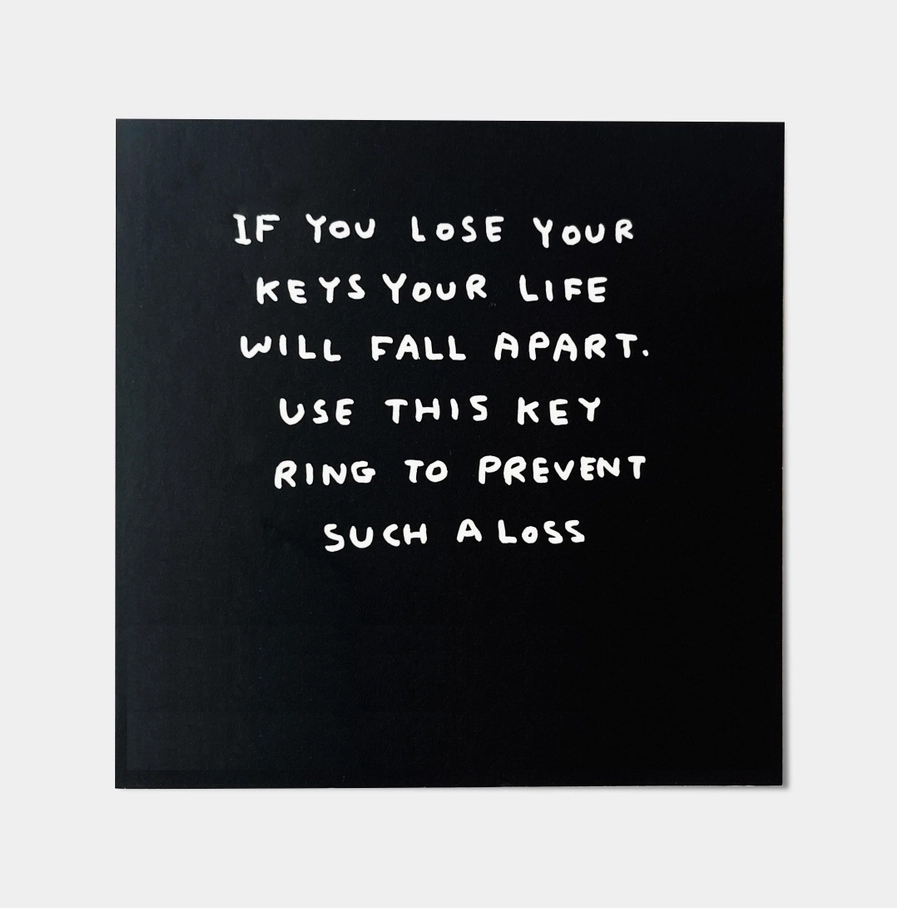 IF YOU LOSE YOUR
KEYS YOUR LIFE
WILL FALL APART.
USE THIS KEY
RING TO PREVENT
SUCH A LOSS